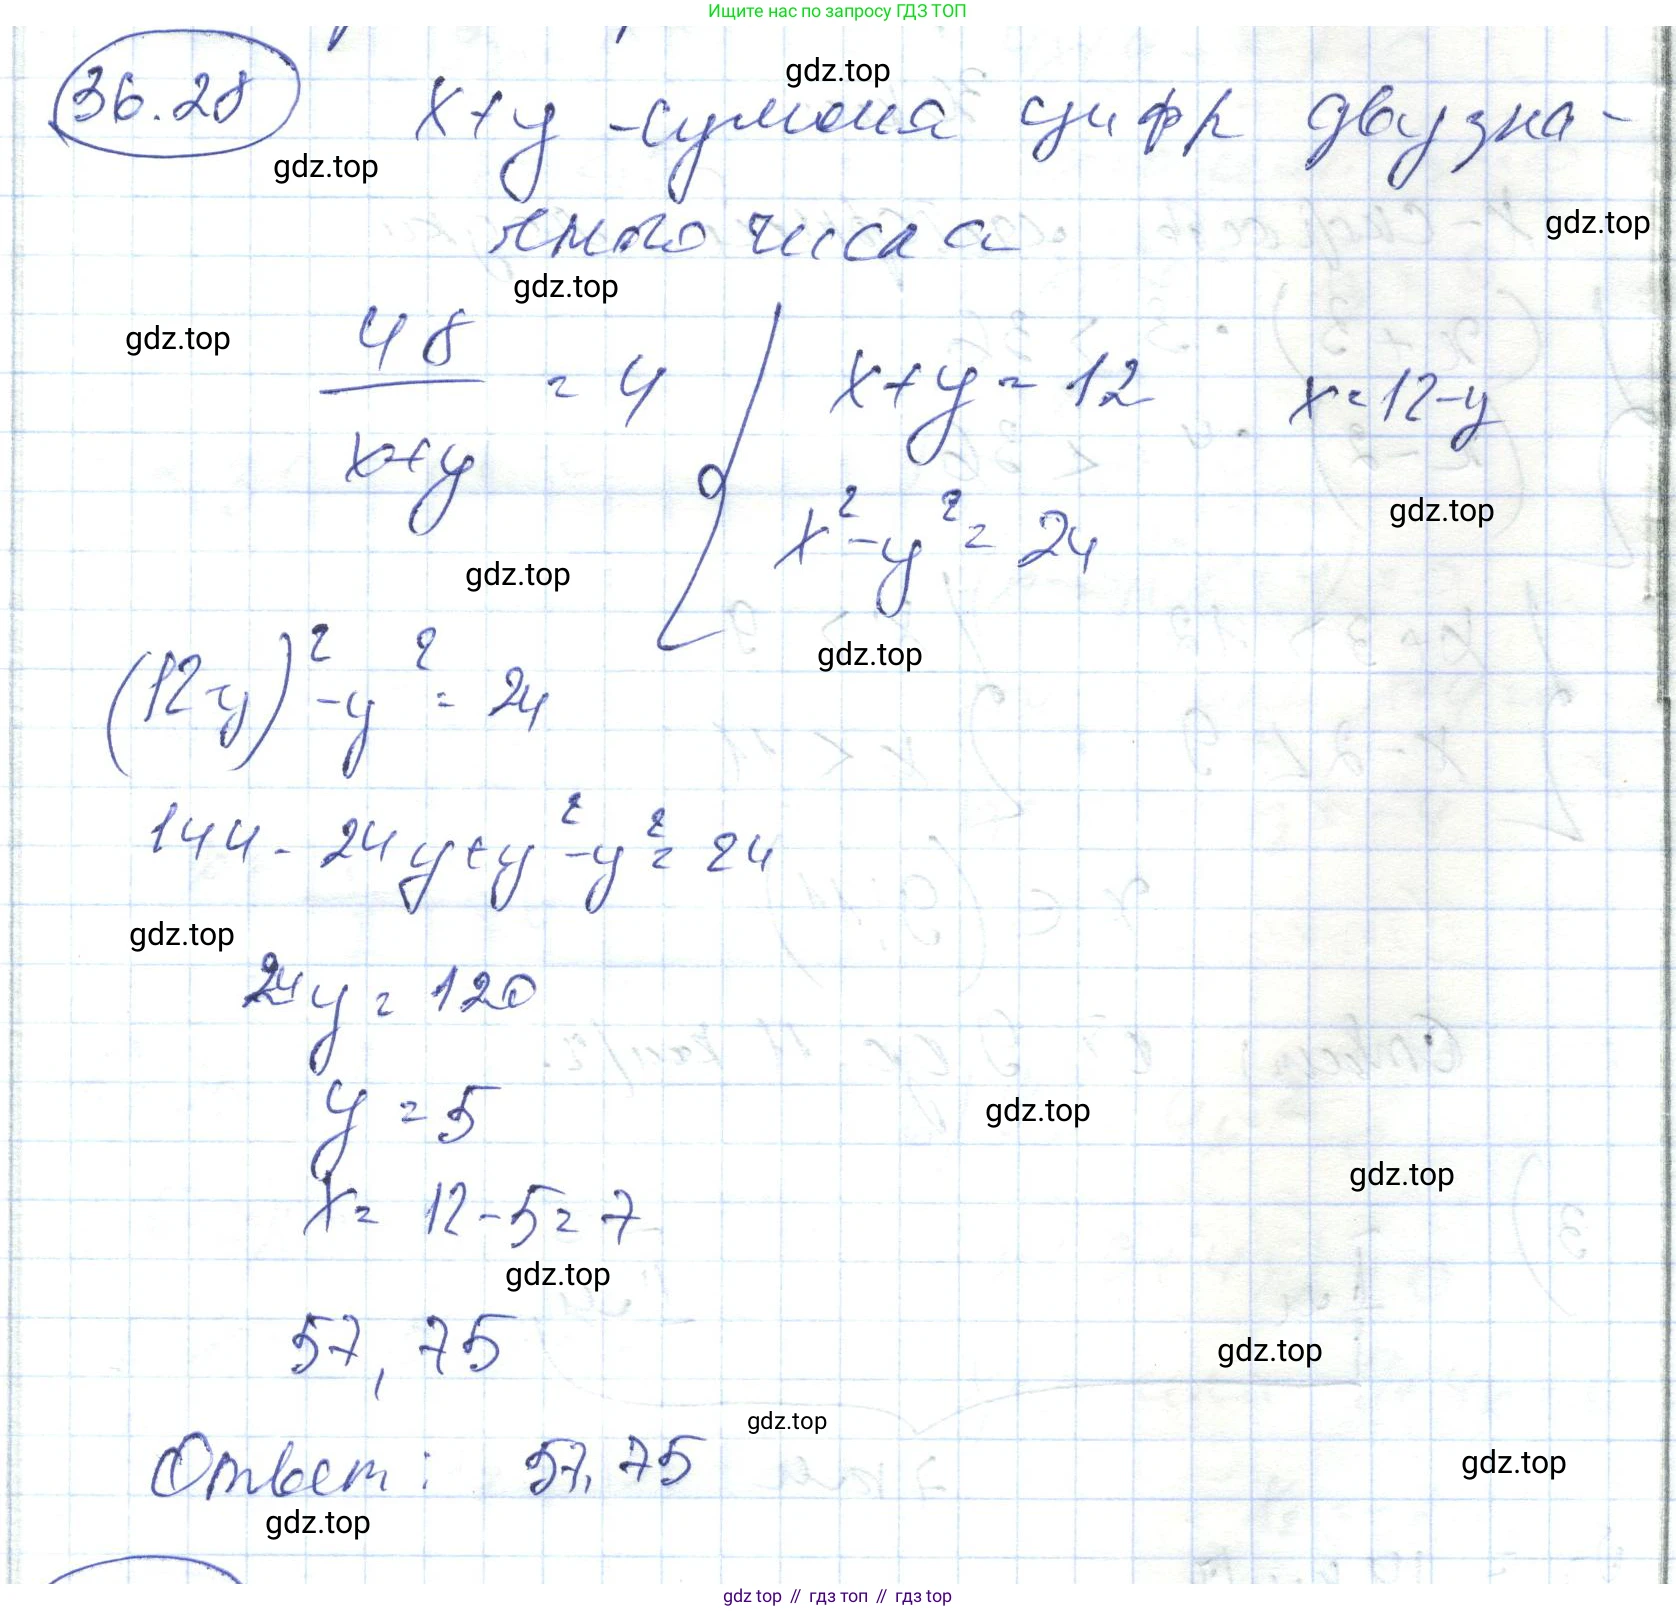 Ищите нас по запросу ГДЗ ТОП
36.28 x+y - сумма цифр двузна-
gdz.top
gdz.top
чного числа
gdz.top
gdz.top
gdz.top
48/(x+y) = 4
x+y = 12 x=12-y
x²-y² = 24
gdz.top
gdz.top
gdz.top
(12-y)²-y² = 24
144 - 24y+y²-y² = 24
gdz.top
24y = 120
y = 5
gdz.top
gdz.top
x = 12-5 = 7
gdz.top
57, 75
gdz.top
gdz.top
Ответ: 57, 75
gdz.top
gdz.top
gdz.top // гдз топ // гдз top